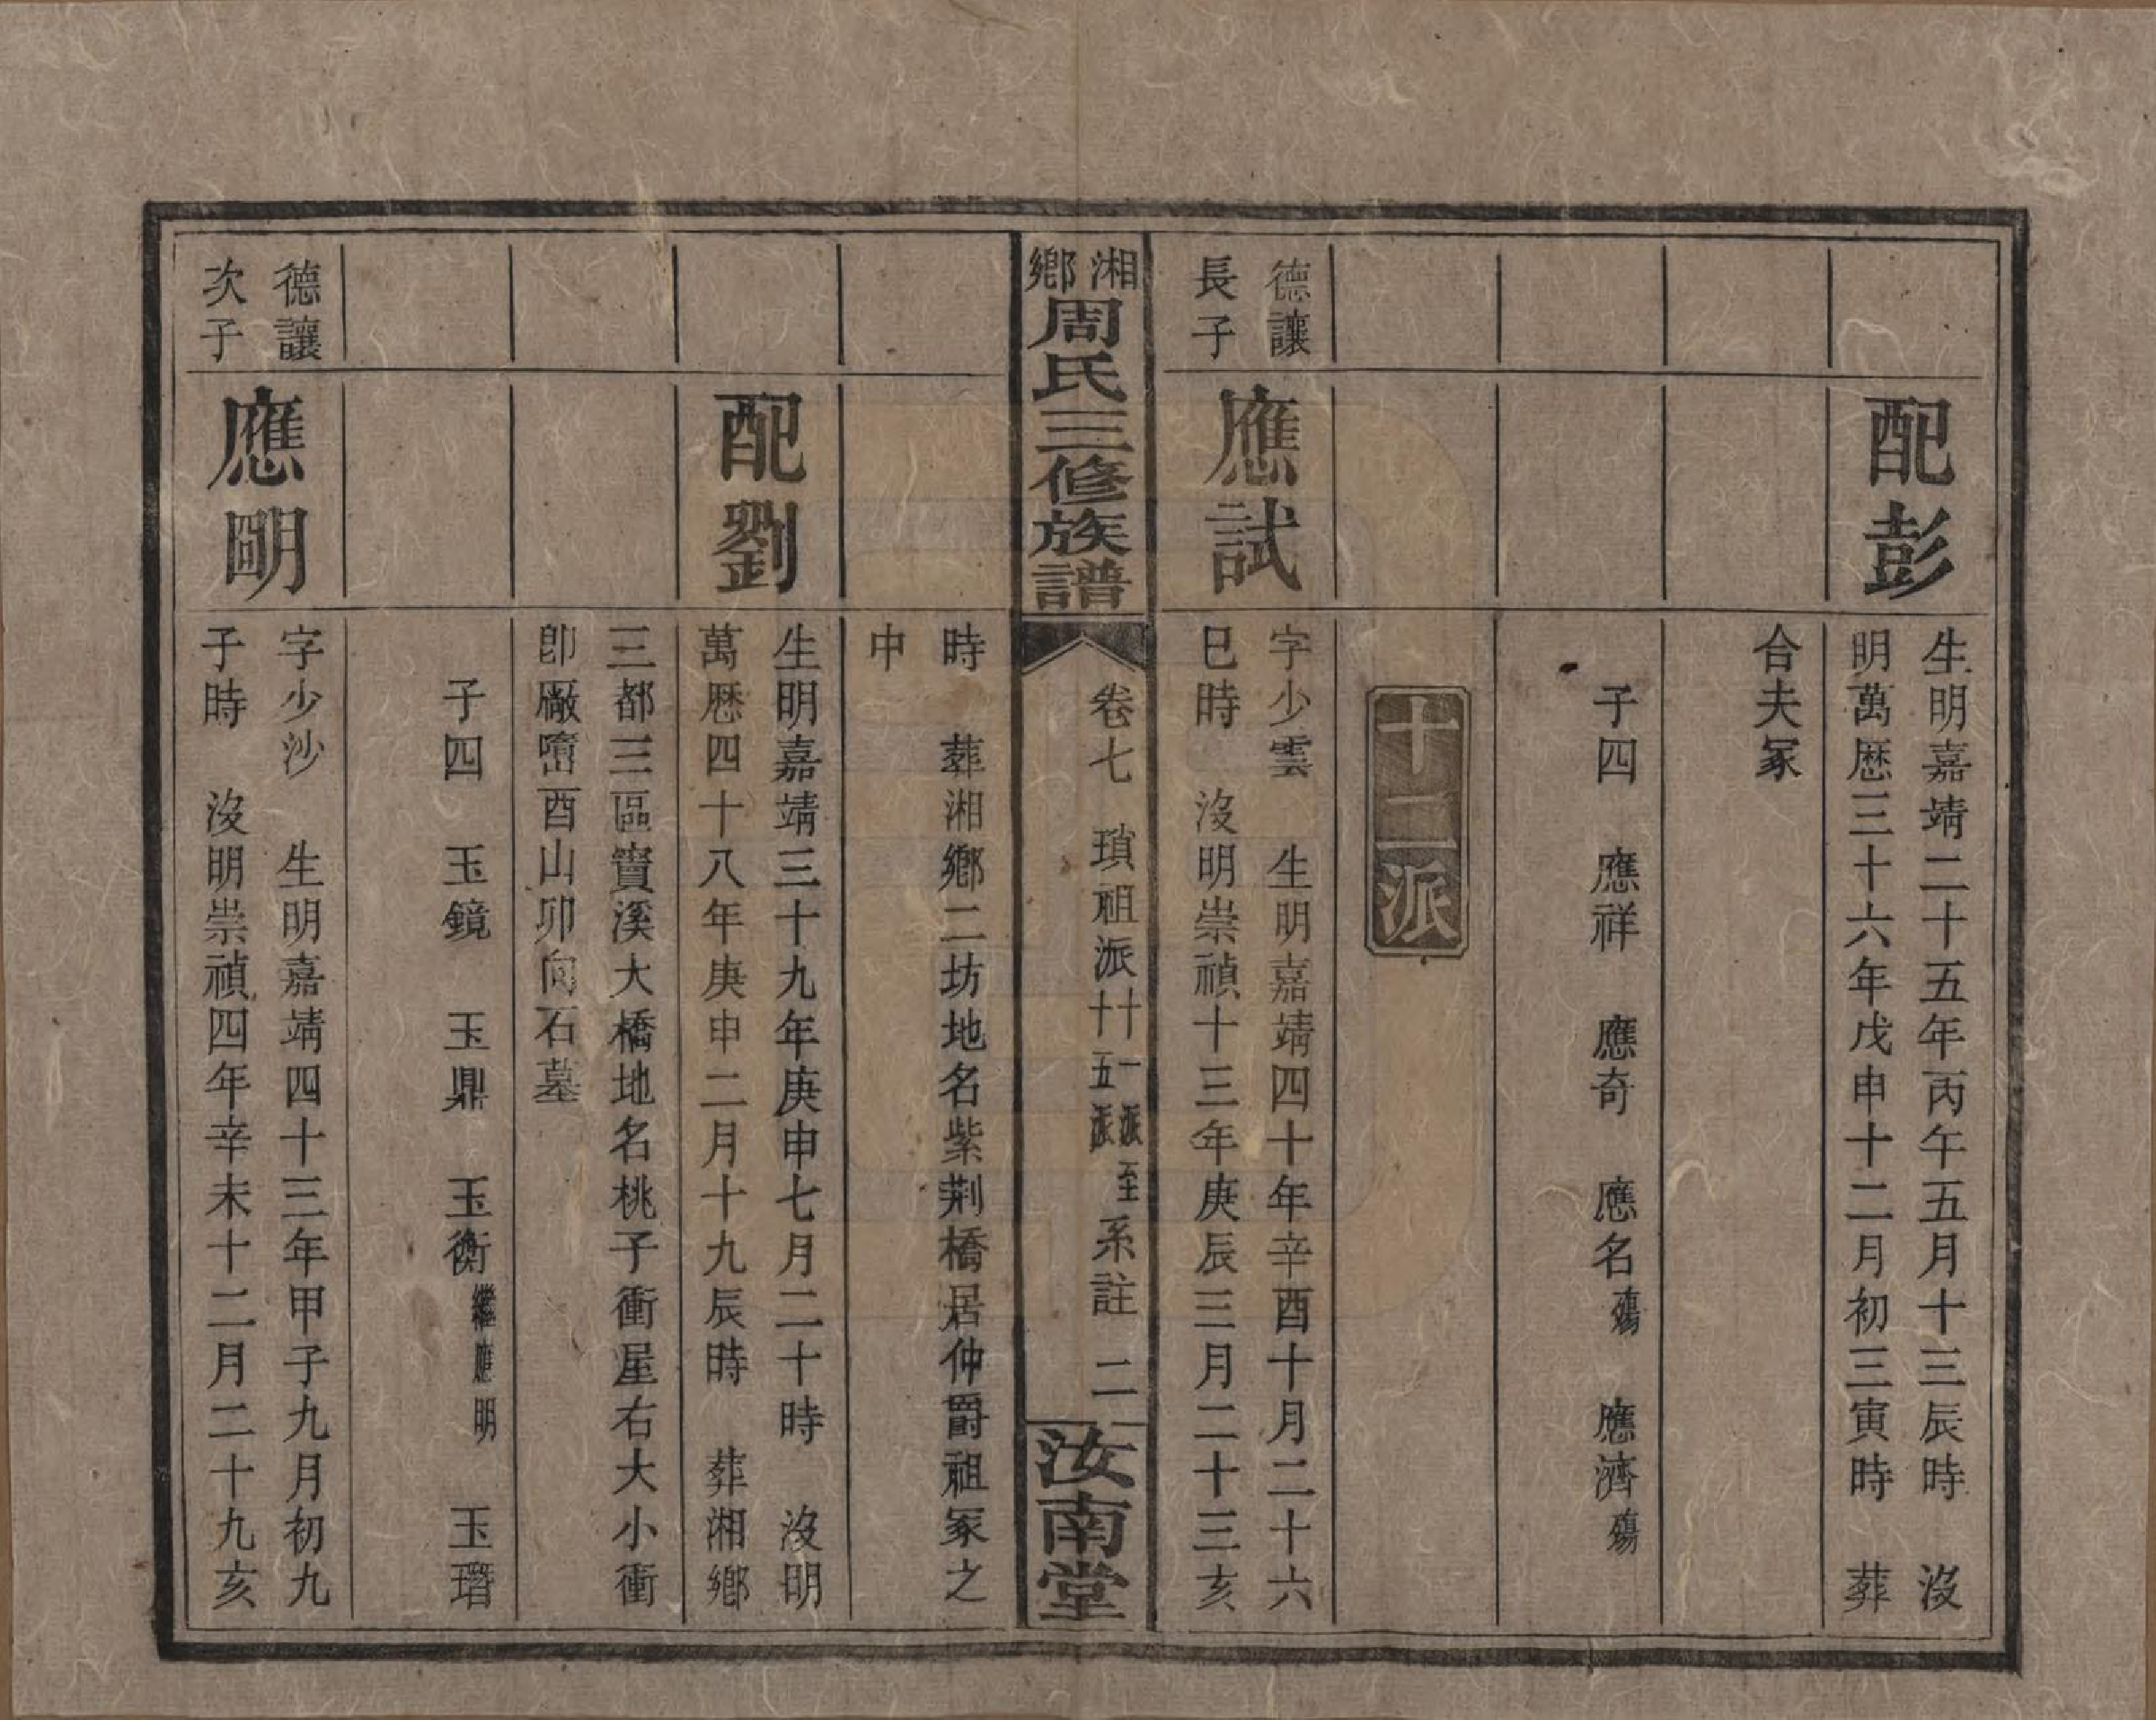 配彭
生明嘉靖二十五年丙午五月十三辰時　沒
明萬歷三十六年戊申十二月初三寅時　葬
合夫冢
子四　應祥　應奇　應名殤　應濟殤
十二派
德讓
長子
應試
字少雲　生明嘉靖四十年辛酉十月二十六
巳時　沒明崇禎十三年庚辰三月二十三亥
湘鄉周氏三修族譜
卷七　瑣祖派十一派至十五派系註　二
汝南堂
時　葬湘鄉二坊地名紫荆橋居仲爵祖冢之
中
配劉
生明嘉靖三十九年庚申七月二十時　沒明
萬歷四十八年庚申二月十九辰時　葬湘鄉
三都三區寶溪大橋地名桃子衝屋右大小衝
卽廠𡺾酉山卯向石墓
子四　玉鏡　玉鼎　玉衡繼應明　玉瑨
德讓
次子
應明
字少沙　生明嘉靖四十三年甲子九月初九
子時　沒明崇禎四年辛未十二月二十九亥